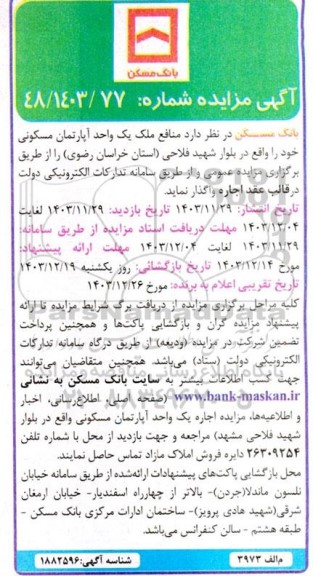 بانک مسکن
آگهی مزایده شماره: ۴۸/۱۴۰۳/۷۷
بانک مسکن در نظر دارد منافع ملک یک واحد آپارتمان مسکونی
خود را واقع در بلوار شهید فلاحی (استان خراسان رضوی) را از طریق
برگزاری مزایده عمومی و از طریق سامانه تدارکات الکترونیکی دولت
در قالب عقد اجاره واگذار نماید.
تاریخ انتشار: ۱۴۰۳/۱۱/۲۹ تاریخ بازدید: ۱۴۰۳/۱۱/۲۹ لغایت
۱۴۰۳/۱۲/۰۴ مهلت دریافت اسناد مزایده از طریق سامانه:
۱۴۰۳/۱۱/۲۹ لغایت ۱۴۰۳/۱۲/۰۴ مهلت ارائه پیشنهاد:
مورخ ۱۴۰۳/۱۲/۱۴ تاریخ بازگشائی: روز یکشنبه ۱۴۰۳/۱۲/۱۹
تاریخ تقریبی اعلام به برنده: مورخ ۱۴۰۳/۱۲/۲۶
کلیه مراحل برگزاری مزایده از دریافت برگ شرایط مزایده تا ارائه
پیشنهاد مزایده گران و بازگشایی پاکت‌ها و همچنین پرداخت
تضمین شرکت در مزایده (ودیعه) از طریق درگاه سامانه تدارکات
الکترونیکی دولت (ستاد) می‌باشد. همچنین متقاضیان می‌توانند
جهت کسب اطلاعات بیشتر به سایت بانک مسکن به نشانی
www.bank-maskan.ir (صفحه اصلی، اطلاع‌رسانی، اخبار
و اطلاعیه‌ها، مزایده اجاره یک واحد آپارتمان مسکونی واقع در بلوار
شهید فلاحی مشهد) مراجعه و جهت بازدید از محل با شماره تلفن
۲۶۳۰۹۲۵۴ دایره فروش املاک مازاد تماس حاصل نمایند.
محل بازگشایی پاکت‌های پیشنهادات ارائه‌شده از طریق سامانه خیابان
نلسون ماندلا(جردن)- بالاتر از چهارراه اسفندیار- خیابان ارمغان
شرقی(شهید هادی پرویز)- ساختمان ادارات مرکزی بانک مسکن -
طبقه هشتم - سالن کنفرانس می‌باشد.
م‌الف ۳۹۷۳
شناسه آگهی: ۱۸۸۲۵۹۶